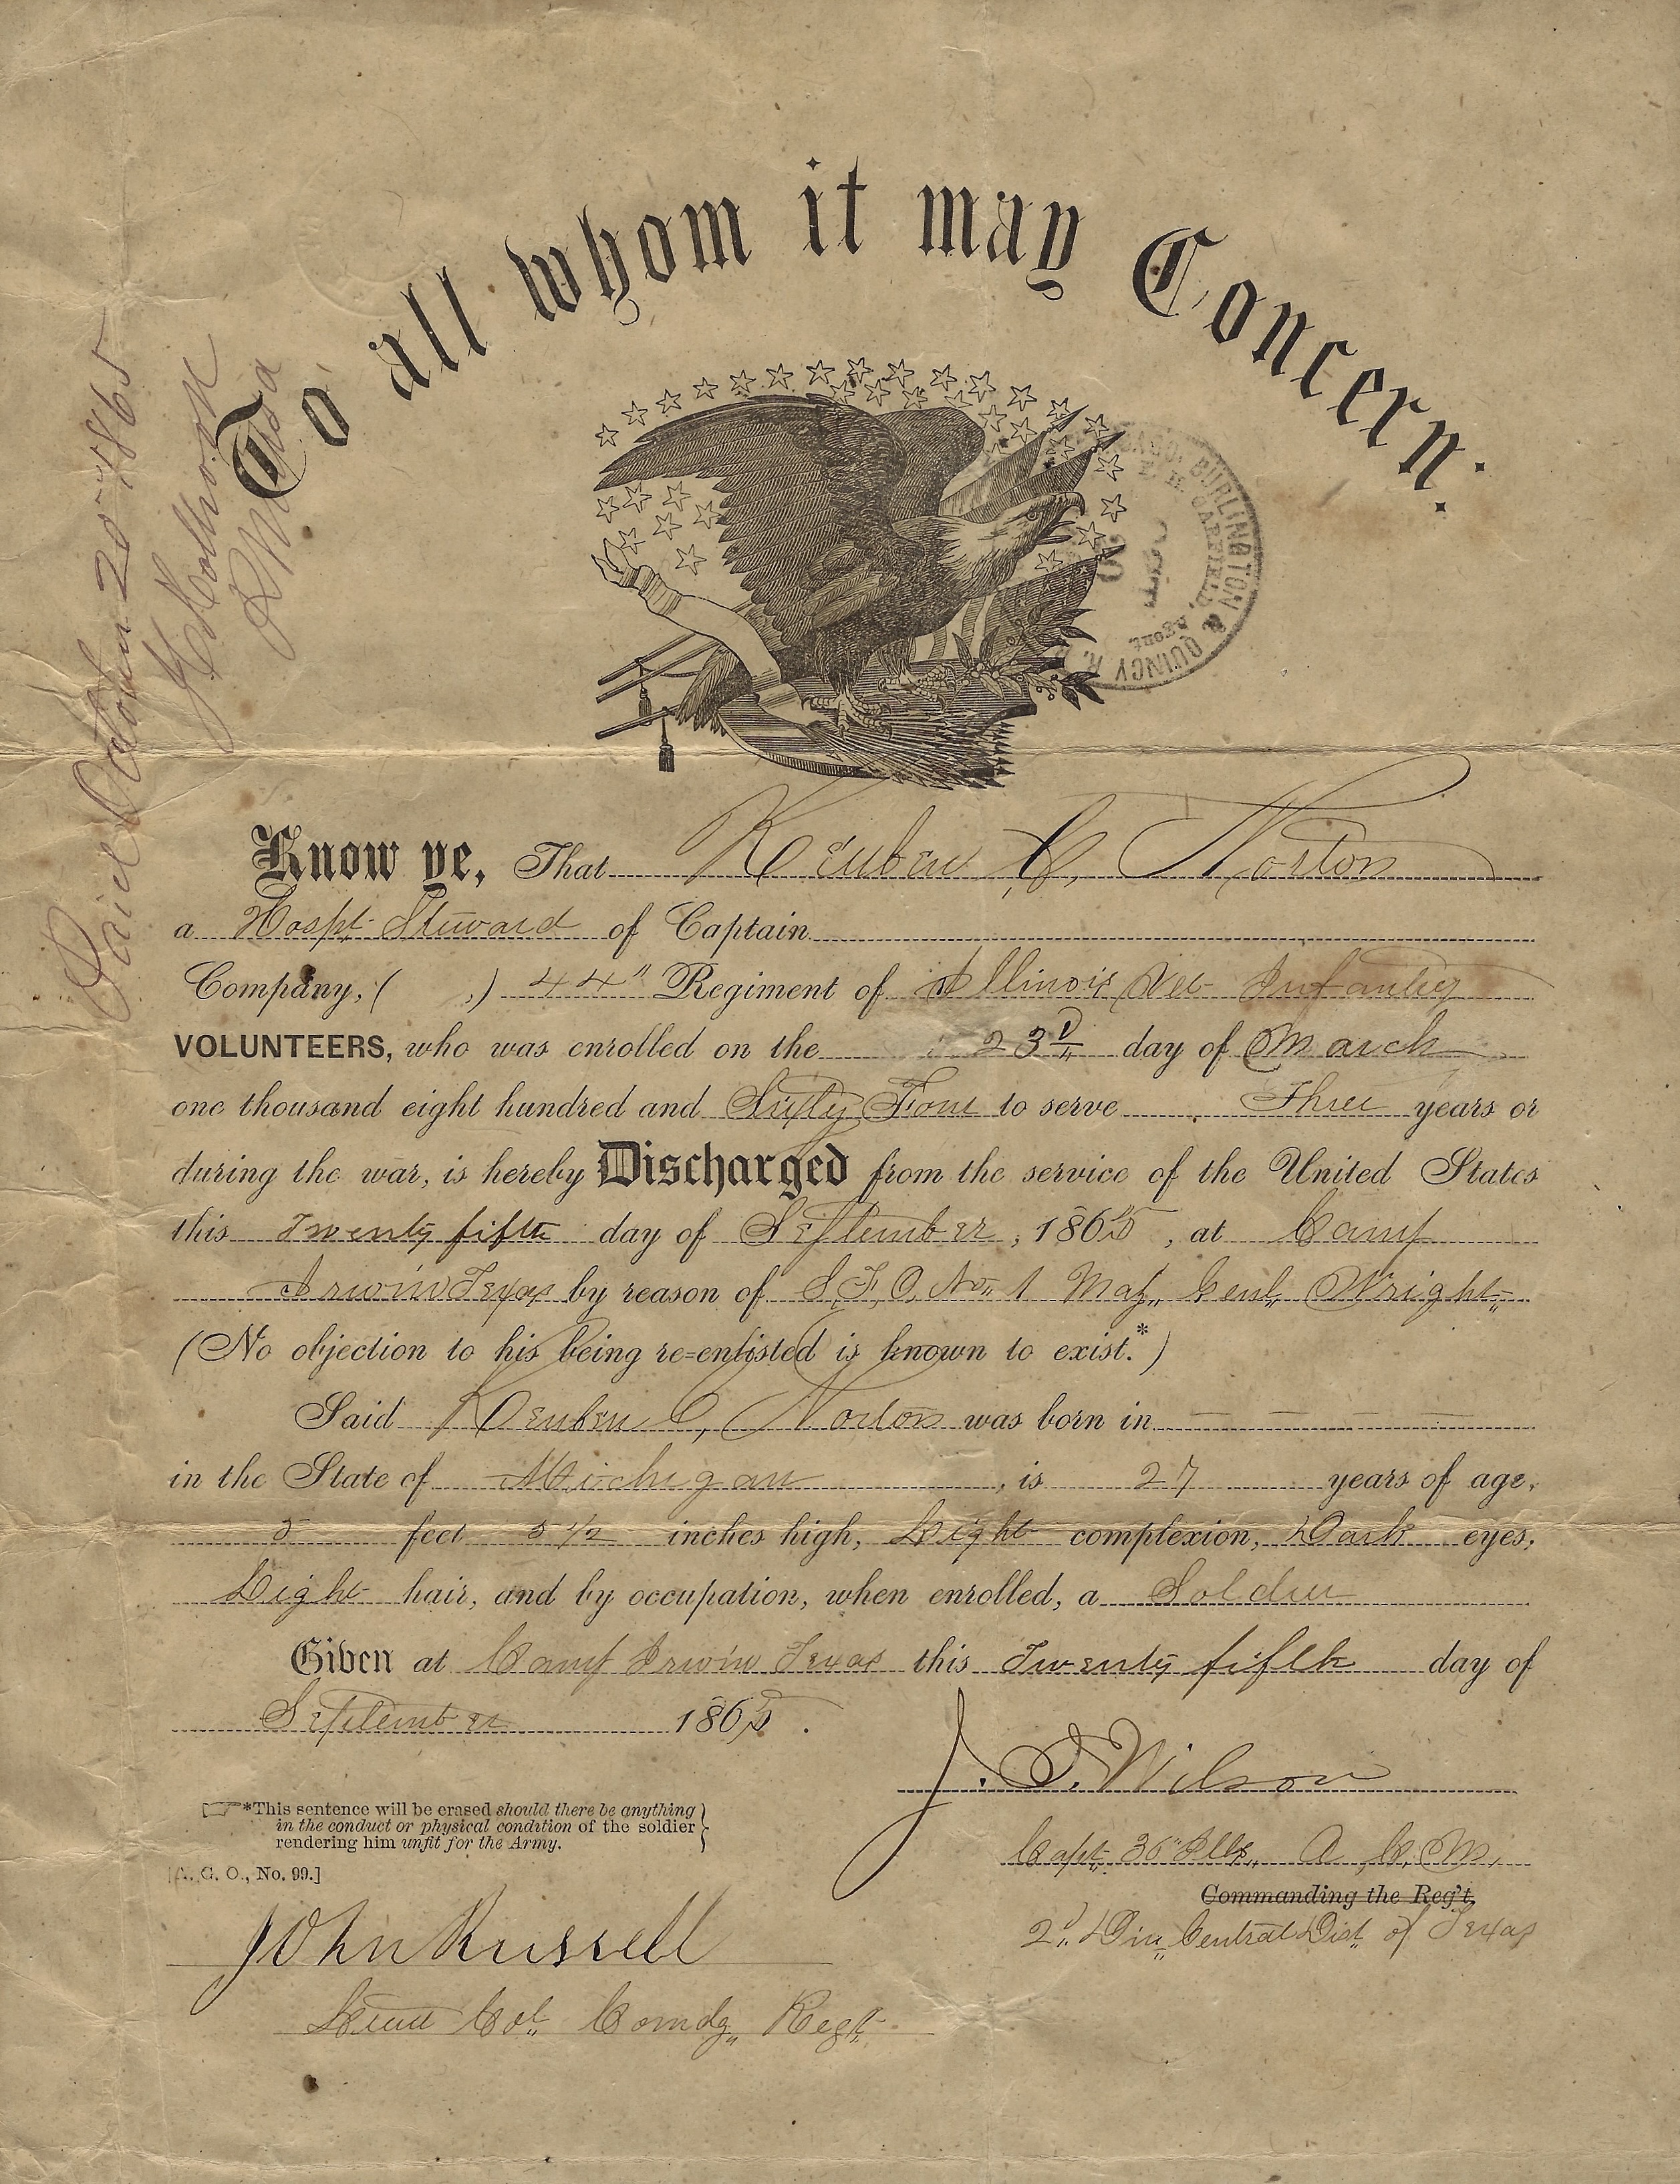 To all whom it may Concern:
CAGO, BURLINGTON & QUINCY R.
E. H. GARFIELD,
Agent.
OCT
Paid October 20 1865
Know ye, That Reuben C. Norton
a Hospt Steward of Captain
Company, ( ,) 44" Regiment of Illinois Vet Infantry
VOLUNTEERS, who was enrolled on the 23d day of March
one thousand eight hundred and Sixty Four to serve Three years or
during the war, is hereby Discharged from the service of the United States
this Twenty fifth day of September, 1865, at Camp
Irwin Texas by reason of S, F, O, No. 1 Maj. Genl. Wright
(No objection to his being re-enlisted is known to exist.*)
Said Reuben C, Norton was born in
in the State of Michigan, is 27 years of age,
5 feet 5 1/2 inches high, Light complexion, Dark eyes,
Light hair, and by occupation, when enrolled, a Soldier
Given at Camp Irwin Texas this Twenty fifth day of
September 1865.
J. Wilson
Capt. 36" Ills, A. C. M.
Commanding the Reg't.
2d Div. Central Dist. of Texas
*This sentence will be erased should there be anything
in the conduct or physical condition of the soldier
rendering him unfit for the Army.
[A. G. O., No. 99.]
John Russell
Lieut Col. Comdg. Regt.